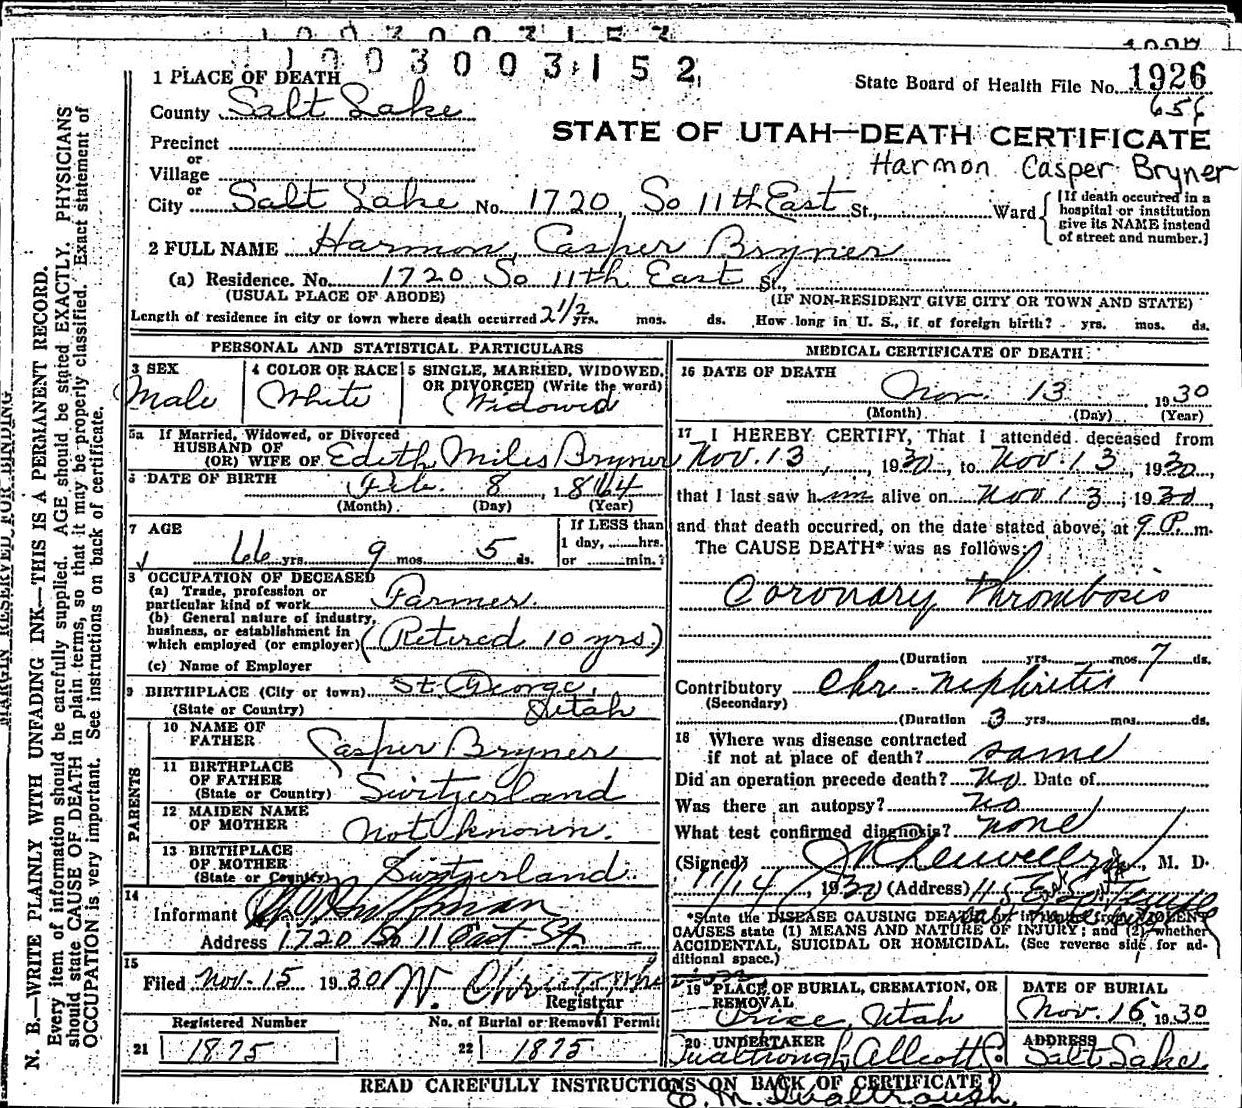 1003003152
1 PLACE OF DEATH
State Board of Health File No. 1926
County Salt Lake
STATE OF UTAH—DEATH CERTIFICATE
Precinct
or
Harmon Casper Bryner
Village
or
City Salt Lake No. 1720 So 11th East St., Ward
[If death occurred in a hospital or institution give its NAME instead of street and number.]
2 FULL NAME Harmon Casper Bryner
(a) Residence. No. 1720 So 11th East St.,
(USUAL PLACE OF ABODE) (IF NON-RESIDENT GIVE CITY OR TOWN AND STATE)
Length of residence in city or town where death occurred 2 1/2 yrs. mos. ds. How long in U. S., if of foreign birth? yrs. mos. ds.
PERSONAL AND STATISTICAL PARTICULARS
3 SEX
Male
4 COLOR OR RACE
White
5 SINGLE, MARRIED, WIDOWED,
OR DIVORCED (Write the word)
Widowed
5a If Married, Widowed, or Divorced
HUSBAND OF
(OR) WIFE OF Edith Miles Bryner
6 DATE OF BIRTH Feb. 8, 1864
(Month) (Day) (Year)
7 AGE
66 yrs. 9 mos. 5 ds.
If LESS than
1 day, hrs.
or min.?
8 OCCUPATION OF DECEASED
(a) Trade, profession or
particular kind of work Farmer.
(b) General nature of industry,
business, or establishment in
which employed (or employer) (Retired 10 yrs.)
(c) Name of Employer
9 BIRTHPLACE (City or town) St. George,
(State or Country) Utah
PARENTS
10 NAME OF
FATHER Casper Bryner
11 BIRTHPLACE
OF FATHER
(State or Country) Switzerland
12 MAIDEN NAME
OF MOTHER not known.
13 BIRTHPLACE
OF MOTHER
(State or Country) Switzerland.
14
Informant
Address 1720 So 11 East St
15
Filed Nov. 15 1930
Registrar
Registered Number
21 1875
No. of Burial or Removal Permit
22 1875
MEDICAL CERTIFICATE OF DEATH
16 DATE OF DEATH
Nov. 13, 1930
(Month) (Day) (Year)
17 I HEREBY CERTIFY, That I attended deceased from
Nov. 13, 1930, to Nov. 13, 1930,
that I last saw him alive on Nov 13, 1930,
and that death occurred, on the date stated above, at 9 P. m.
The CAUSE DEATH* was as follows:
Coronary Thrombosis
(Duration yrs. mos. 7 ds.
Contributory Chr. nephritis
(Secondary)
(Duration 3 yrs. mos. ds.
18 Where was disease contracted
if not at place of death? same
Did an operation precede death? No. Date of
Was there an autopsy? no
What test confirmed diagnosis? none
(Signed) , M. D.
11/14/, 1930 (Address)
*State the DISEASE CAUSING DEATH or in deaths from VIOLENT
CAUSES state (1) MEANS AND NATURE OF INJURY; and (2) whether
ACCIDENTAL, SUICIDAL OR HOMICIDAL. (See reverse side for ad-
ditional space.)
19 PLACE OF BURIAL, CREMATION, OR
REMOVAL
Price, Utah
DATE OF BURIAL
Nov. 16, 1930
20 UNDERTAKER
ADDRESS
Salt Lake
READ CAREFULLY INSTRUCTIONS ON BACK OF CERTIFICATE
MARGIN RESERVED FOR BINDING
N. B.—WRITE PLAINLY WITH UNFADING INK—THIS IS A PERMANENT RECORD.
Every item of information should be carefully supplied. AGE should be stated EXACTLY. PHYSICIANS
should state CAUSE OF DEATH in plain terms, so that it may be properly classified. Exact statement of
OCCUPATION is very important. See instructions on back of certificate.